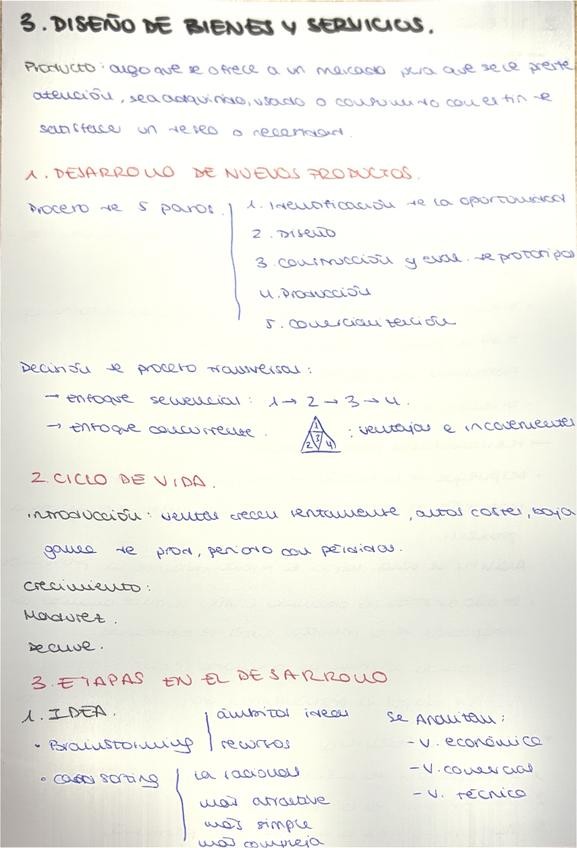 3. DISEÑO DE BIENES Y SERVICIOS.
Producto: algo que se ofrece a un mercado para que se le preste
atención, sea adquirido, usado o consumido con el fin de
satisface un deseo o necesidad.
1. DESARROLLO DE NUEVOS PRODUCTOS.
Proceso de 5 pasos.
1. Identificación de la oportunidad
2. Diseño
3. Construcción y eval. de prototipos
4. Producción
5. Comercialización
Decisión de proceso transversal:
→ Enfoque secuencial: 1 → 2 → 3 → 4.
→ Enfoque concurrente. 1 2 3 4 : ventajas e inconvenientes
2. CICLO DE VIDA.
Introducción: ventas crecen lentamente, altos costes, baja
gama de prod, periodo con pérdidas.
Crecimiento:
Madurez.
Declive.
3. ETAPAS EN EL DESARROLLO
1. IDEA.
• Brainstorming
ámbitos ideas
recursos
• Card sorting
la racional
más atractive
más simple
más compleja
Se Analizan:
- V. económica
- V. comercial
- V. técnica